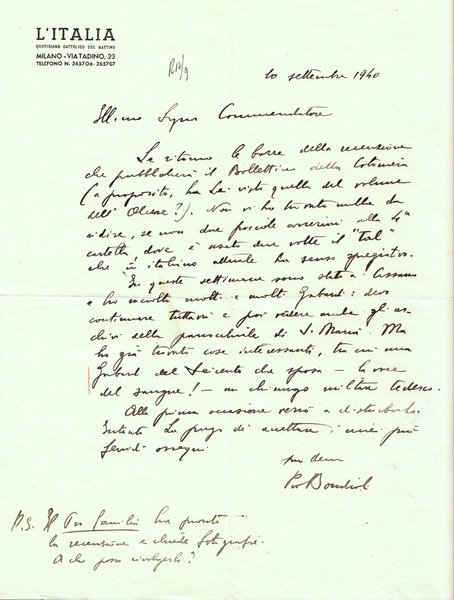 L'ITALIA
QUOTIDIANO CATTOLICO DEL MATTINO
MILANO - VIA TADINO, 23
TELEFONO N. 265706 - 265707
10 settembre 1940
Ill.mo Signor Commendatore
Le ritorno le bozze della recensione
che pubblicherà il Bollettino della
(a proposito, ha Lei visto quella del volume
dell' ?). Non vi ho trovato nulla da
ridire, se non due piccole correzioni alla 4ª
cartella, dove è usato due volte il "tal"
che in italiano attuale ha senso spregiativo.
In queste settimane sono stato a
e ho raccolto molti e molti : devo
continuare tuttavia e poi vedere anche gli ar-
chivi della parrocchiale di S. Maria. Ma
ho già trovato cose interessanti, tra cui una
del Seicento che sposa - la voce
del sangue! - un chirurgo militare tedesco.
Alla prima occasione verrò a disturbarla.
Intanto La prego di accettare i miei più
fervidi ossequi
P.S. Il ha pronta
la recensione e chiede fotografie.
A chi posso rivolgermi?